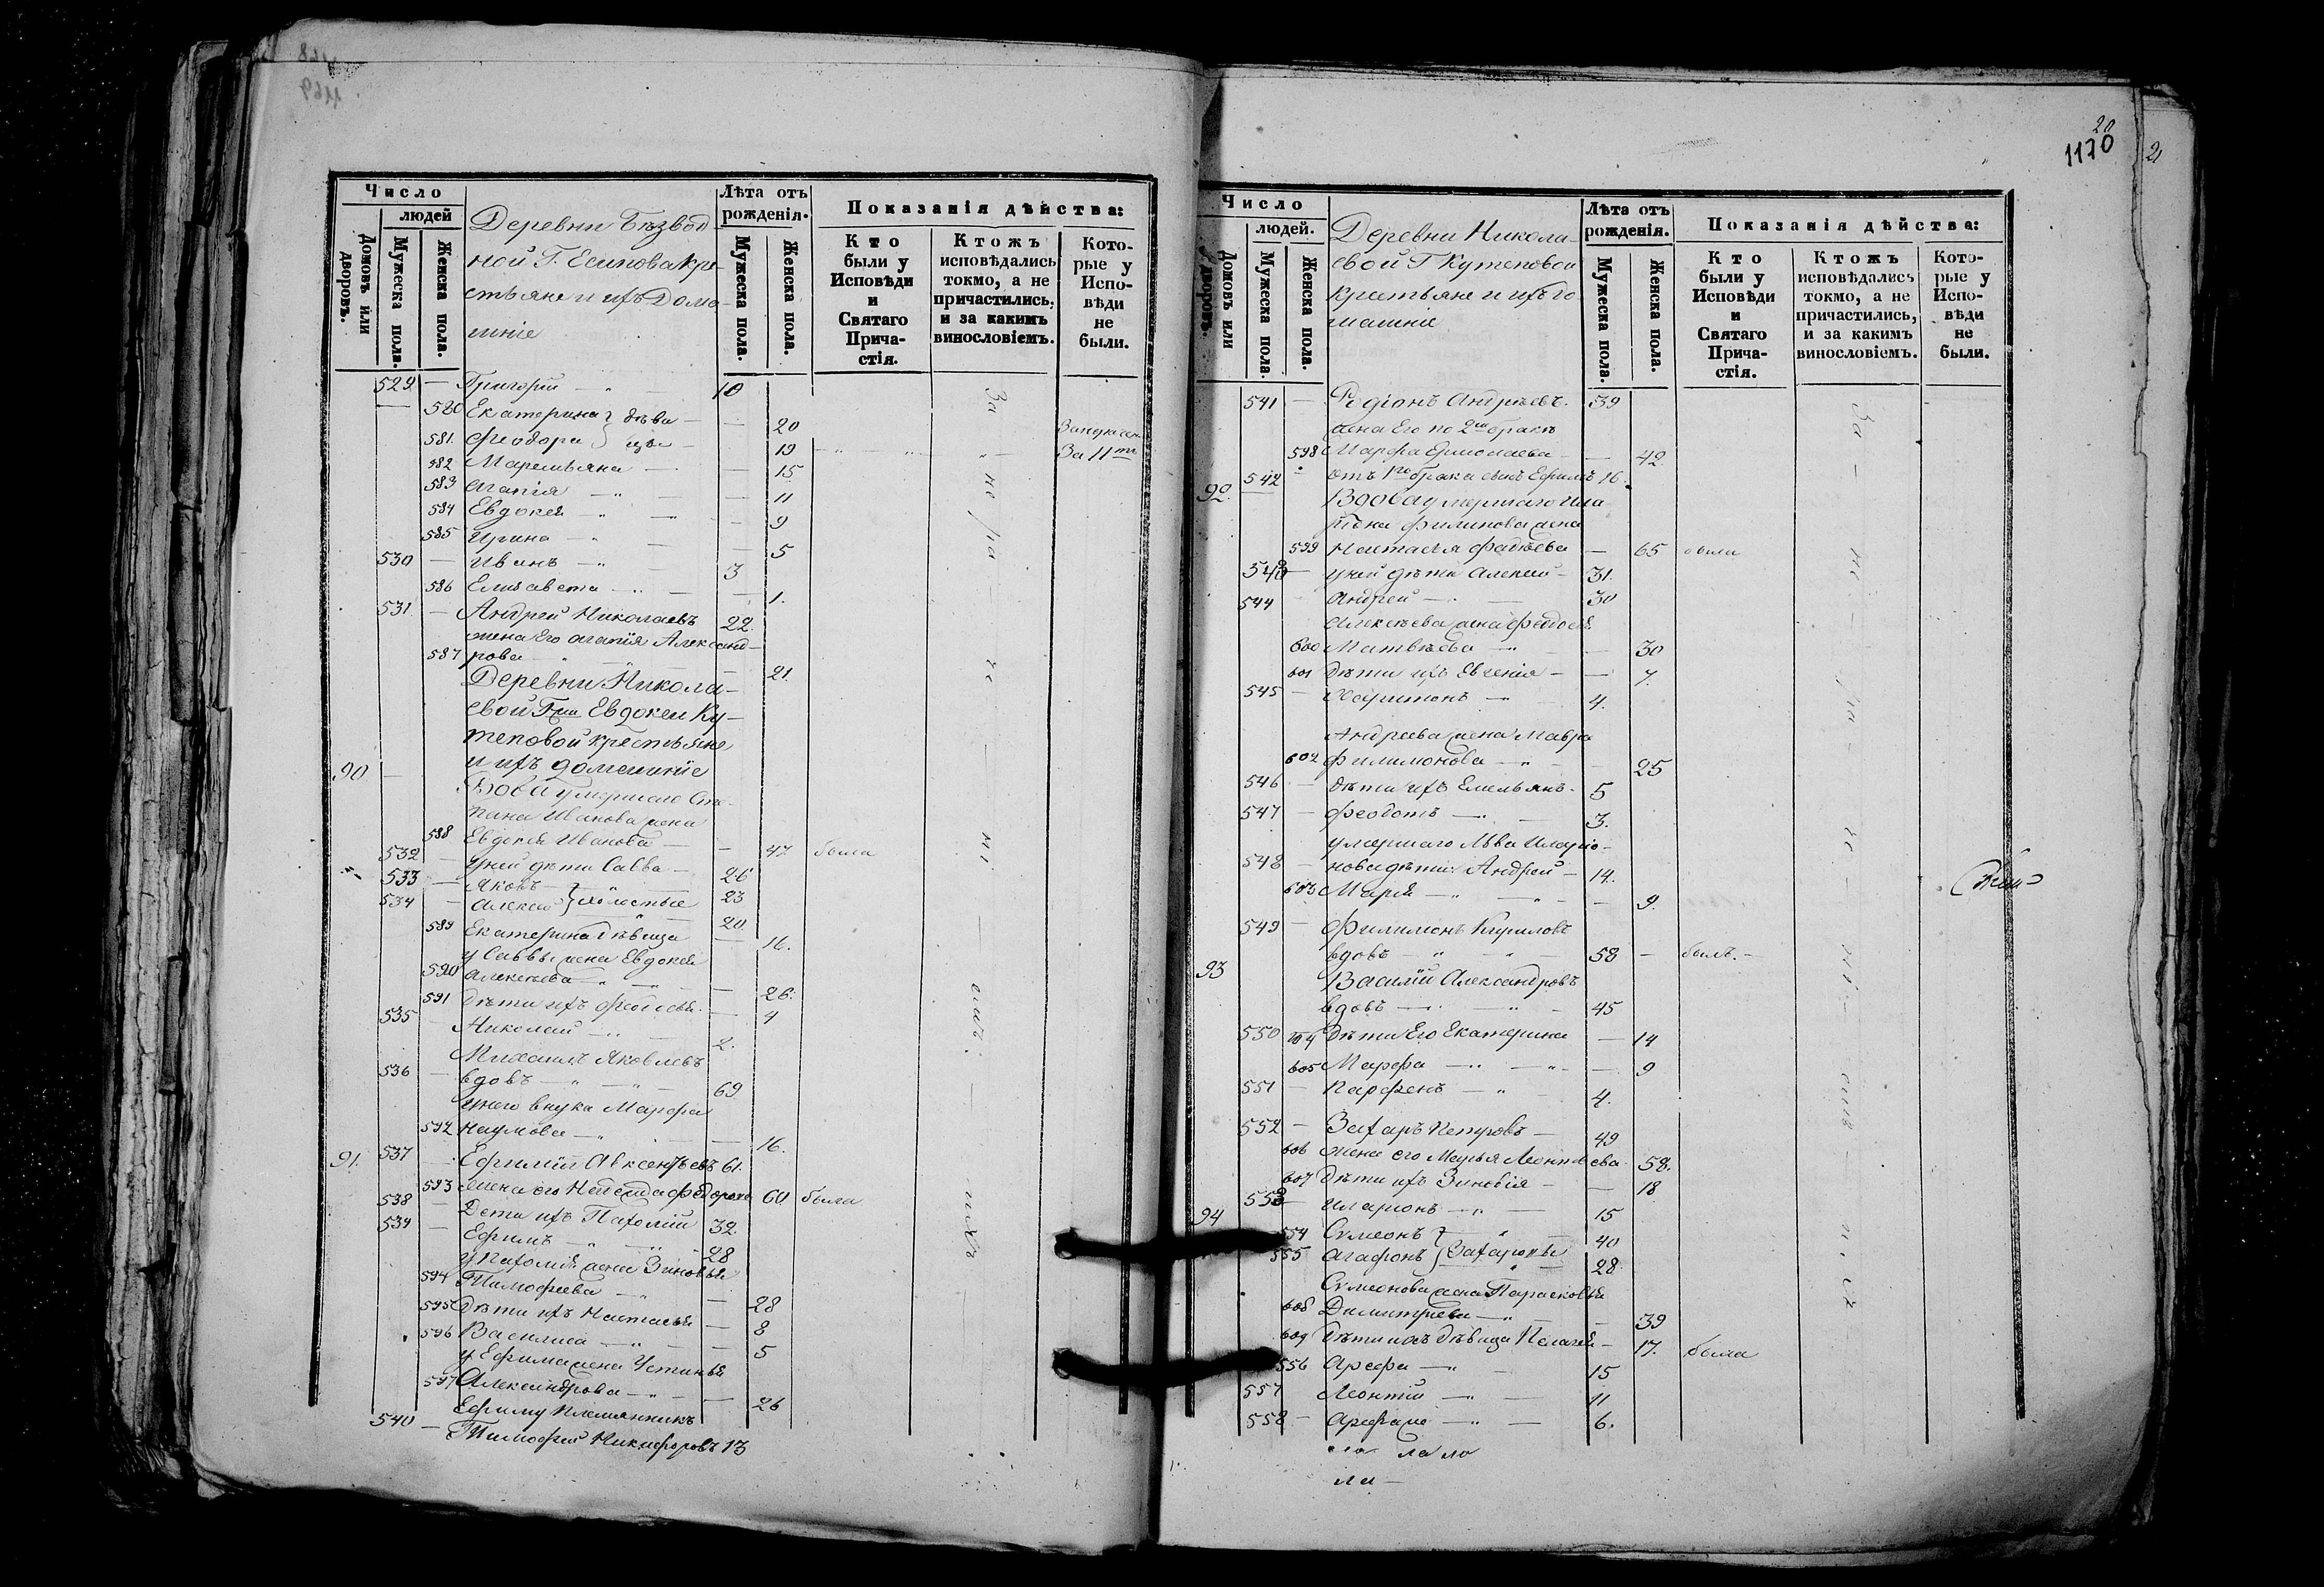 Число
людей
Домовъ или дворовъ.
Мужеска пола.
Женска пола.
Деревни Бѣзвод-
ной Г. Есипова кре-
стьяне и ихъ Дома-
шніе
Лѣта отъ рожденія.
Мужеска пола.
Женска пола.
Показанія дѣйства:
Кто были у Исповѣди и Святаго Прича-стія.
Ктожъ исповѣдались токмо, а не причастились, и за какимъ винословіемъ.
Кото-рые у Испо-вѣди не были.
529 — Григорій — " — 10
580 Екатерина } дѣви — — 20
581. Феодора } цы — 19
За 11
582 Маремьяна — — 15
583 Агапія — " — — 11
584 Евдокея — " — — 9
585 Ирина — " — — 5
530 — Иванъ — " 3
586 Елисавета — " — — 1.
531 — Андрей Николаевъ 22.
жена Его Агапія Александ-
587 рова — " — 21.
Деревни Никола-
евой Г-жи Евдокеи Ку-
теповой крестьяне
90 — и ихъ домашніе
Вдова умершаго Сте-
пана Иванова жена
588 Евдокея Иванова — — 47 была
532 — у ней дѣти Савва — 26
533 — Яковъ } холостые 23
534 — Алексей } 20
589 Екатерина дѣвица — 16.
у Саввы жена Евдокея
590 Алексеева — " — " — 26.
591 дѣти ихъ Феодосья — 4
535 — Николай — " — 2.
Михаилъ Яковлевъ
536 — вдовъ — " — " — 69
у него внука Марфа
592 Наумова — " — 16.
91. 537 — Ефимій Авксентьевъ 61.
593 жена его Федорова 60 была
538 — Дети ихъ Пахомій 32
539 — Ефимъ — " — " 28
у Пахомія жена Зиновья
594 Тимофеева — " — 28
595 Дѣти ихъ Настасья — 8
596 Василиса — " — 5
у Ефима жена Устинья
597 Александрова — " — 26
Ефиму племянникъ
540 — Тимофей Никифоровъ 13
20
1170
21
Число
людей.
Домовъ или дворовъ.
Мужеска пола.
Женска пола.
Деревни Никола-
евой Г Кутеповой
крестьяне и ихъ до
машніе
Лѣта отъ рожденія.
Мужеска пола.
Женска пола.
Показанія дѣйства:
Кто были у Исповѣди и Святаго Прича-стія.
Ктожъ исповѣдались токмо, а не причастились, и за какимъ винословіемъ.
Кото-рые у Испо-вѣди не были.
541 — Родіонъ Андреевъ. 39
жена Его по 2мъ бракѣ
598 Марфа Ермолаева — — 42.
542 — отъ 1го брака сынъ Ефимъ 16.
92. Вдова умершаго Ила
ріона Филипова жена
599 Настасья Фадѣева — 65 была
543 — у ней дѣти Алексей — 31.
544 Андрей — " — 30
Алексѣева жена Феодосья
600 Матвѣева — " — 30
601 дѣти ихъ Евгенія — — 7.
545 — Харитонъ — " 4.
Андреева жена Мавра
602 Филимонова — " — 25
546 — дѣти ихъ Емельянъ. 5
547 — Феодотъ — " — 3.
умершаго Льва Иларіо-
548 — нова дѣти: Андрей — 14.
603 Марья — " — " — 9.
549 — Филимонъ Кириловъ
вдовъ — " — " — 58 — былъ. —
93 Василій Александровъ
вдовъ — " — " — 45
550 604 Дѣти Его Екатерина — 14
605 Марфа — " — " — 9
551 — Парфенъ — " — 4.
552 — Захаръ Петровъ — 49
606 жена его Марья Леонтьева. 58.
607 дѣти ихъ Зиновія — — 18
553 — Иларіонъ — " — 15
94 554 Симеонъ } " — 40
555 Агафонъ } Захаровы 28
Симеонова жена Парасковья
608 Димитріева — " — — 39
609 Дѣти ихъ дѣвица Пелагея — 17. была
556 Арефа — " — 15
557 Леонтій — " — 11
558 — — " — 6.
ла ло
ли —